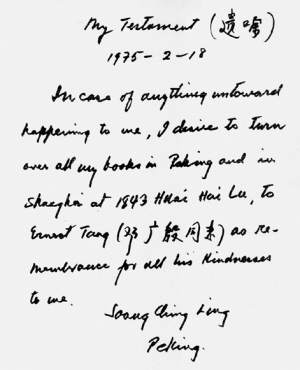 My Testament (遗嘱)
1975-2-18
In case of anything untoward
happening to me, I desire to turn
over all my books in Peking and in
Shanghai at 1843 Huai Hai Lu, to
Ernest Tang (邓广殷同志) as re-
membrance for all his kindnesses
to me.
Soong Ching Ling
Peking.